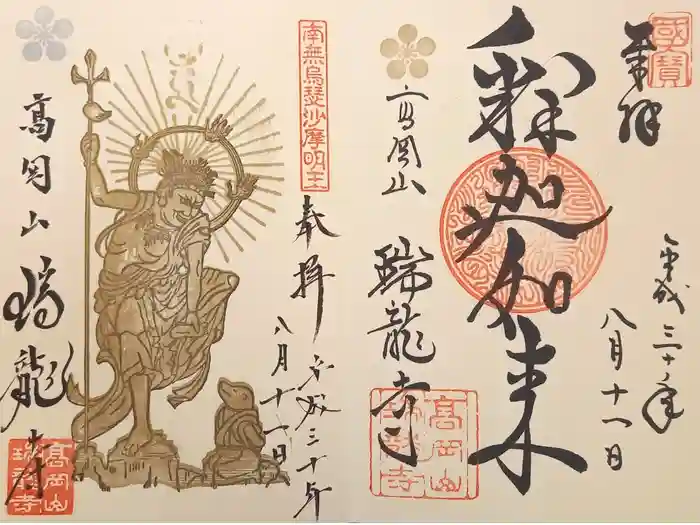 國寳
奉拝
平成三十年
八月十一日
釈迦如来
高岡山
瑞龍寺
高岡山
瑞龍寺
南無烏瑟沙摩明王
奉拝
平成三十年
八月十一日
高岡山
瑞龍寺
高岡山
瑞龍寺